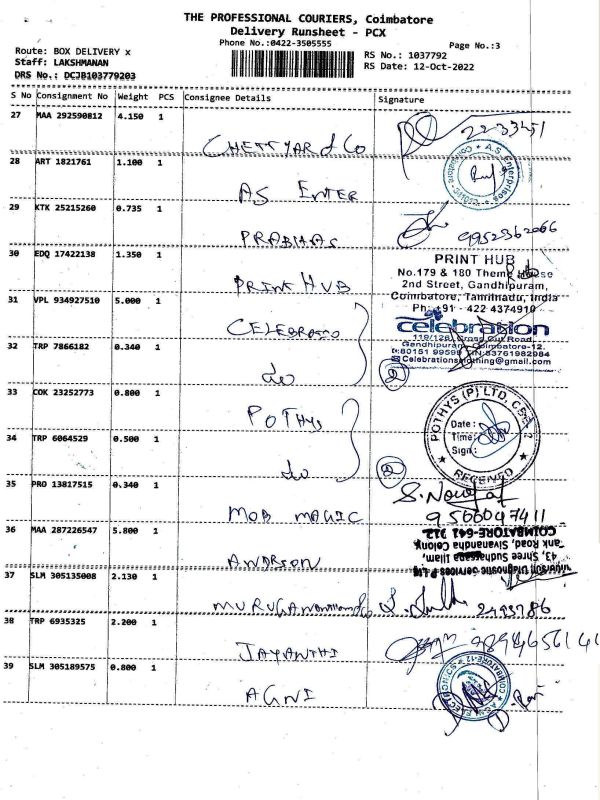 THE PROFESSIONAL COURIERS, Coimbatore
Delivery Runsheet - PCX
Phone No.:0422-3505555
Page No.:3
Route: BOX DELIVERY x
Staff: LAKSHMANAN
DRS No.: DCJB103779203
RS No.: 1037792
RS Date: 12-Oct-2022
S No Consignment No Weight PCS Consignee Details Signature
27 MAA 292590812 4.150 1
CHETTYAR & Co
28 ART 1821761 1.100 1
AS ENTER
A.S. Enterprises
29 KTK 25215260 0.735 1
PRABHAS 9952362066
30 EDQ 17422138 1.350 1
PRINT HUB
PRINT HUB
No.179 & 180 Theme House
2nd Street, Gandhipuram,
Coimbatore, Tamilnadu, India
Ph: +91 - 422 4374910
31 VPL 934927510 5.000 1
celebration
119/126, Cross Cut Road,
Gandhipuram, Coimbatore-12.
32 TRP 7866182 0.340 1
do 2
33 COK 23252773 0.800 1
POTHYS
POTHYS (P) LTD, CBE-12
Date:
Time:
Sign:
RECEIVED
34 TRP 6064529 0.500 1
do 2
35 PRO 13817515 0.340 1
MOB MAGIC
9566047411
36 MAA 287226547 5.800 1
ANDRSON
43, Shree Sudharsana Illam,
Tank Road, Sivanandha Colony,
COIMBATORE-641 012.
37 SLM 305135008 2.130 1
2493786
38 TRP 6935325 2.200 1
JAYANTHI
39 SLM 305189575 0.800 1
AGNI